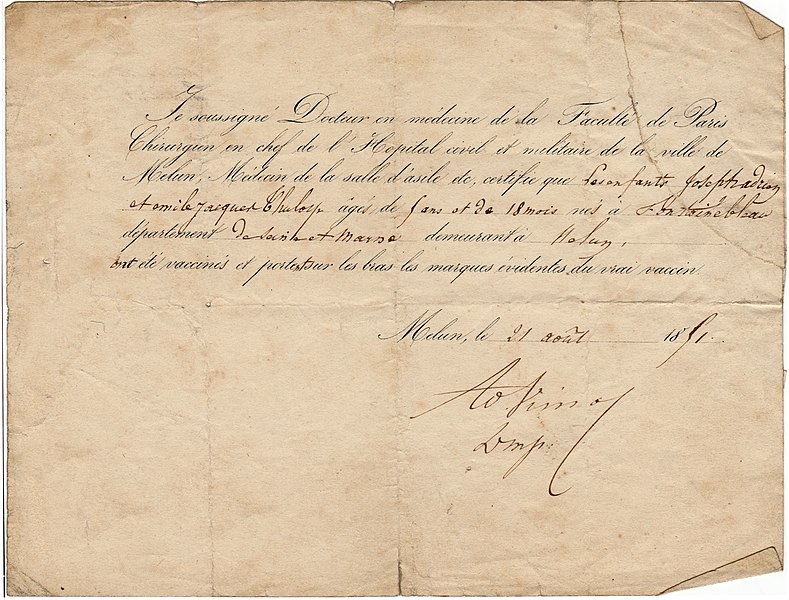 Je soussigné Docteur en médecine de la Faculté de Paris
Chirurgien en chef de l'Hopital civil et militaire de la ville de
Melun, Médecin de la salle d'asile de, certifie que les enfants Joseph adrien
et emile jacques âgés de 5 ans et de 18 mois nés à Fontainebleau
département de Seine et Marne demeurant à Melun,
ont été vaccinés et portent sur les bras les marques évidentes du vrai vaccin
Melun, le 21 août 1851.
Dmp.